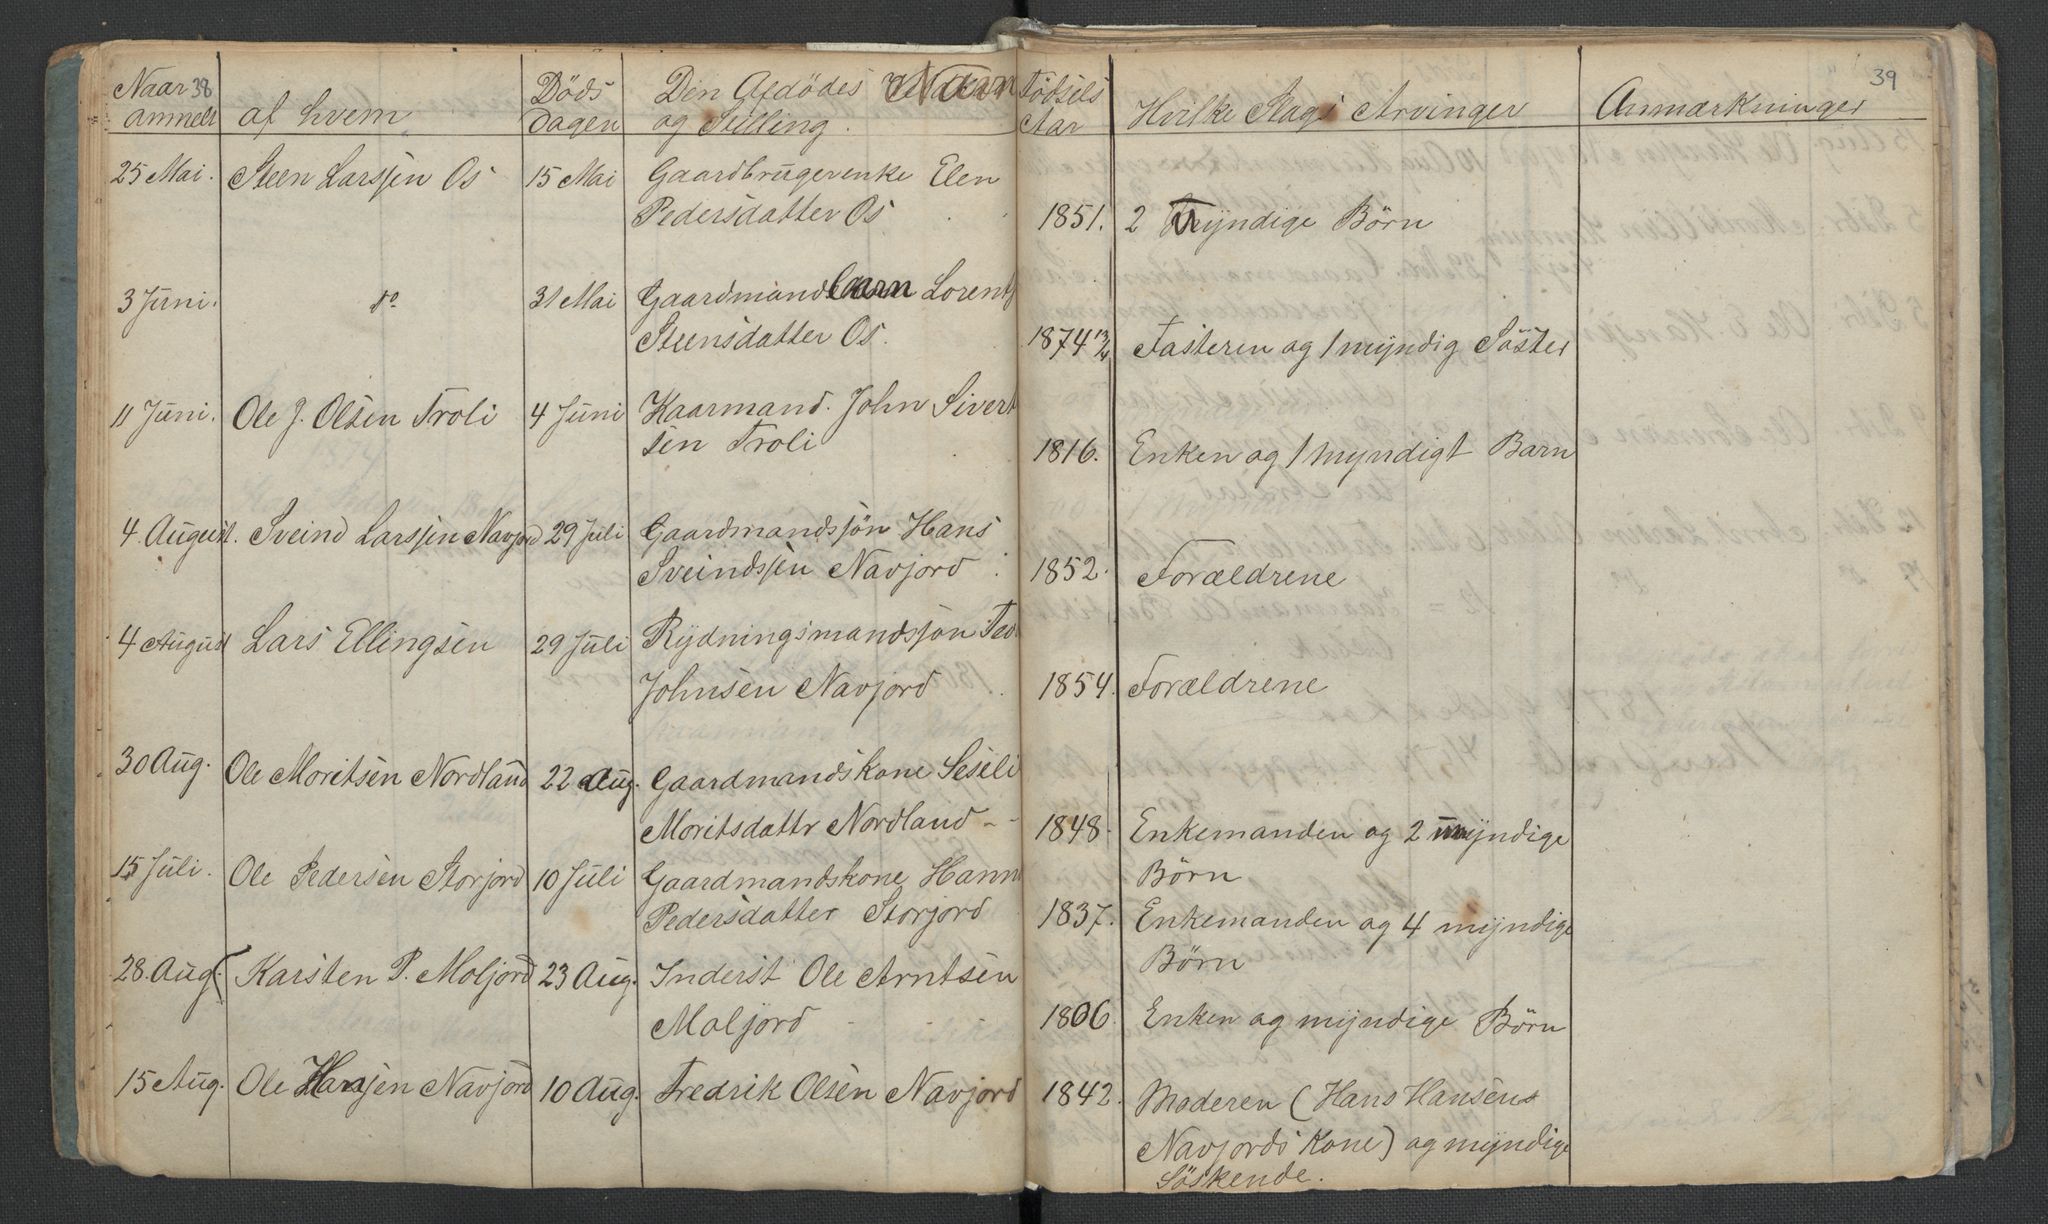 38
39
Naar anmeldt
af hvem
Döds Dagen
Den Afdödes Navn
og Stilling.
Födsels Aar
Hvilke Slags Arvinger
Anmærkninger
25 Mai. Steen Larssen Os 15 Mai Gaardbrugerenke Elen
Pedersdatter Os
1851. 2 Umyndige Börn
3 Juni. do 31 Mai Gaardmandsbarn Lorents
Steensdatter Os.
1874 Fasteren og 1 myndig Söster
11 Juni. Ole J. Olsen Troli 4 Juni Kaarmand. John Sivert
sen Troli
1816. Enken og 1 myndigt Barn
4. August. Sveind Larssen Navjord 29 Juli Gaardmandssön Hans
Sveindssen Navjord
1852. Forældrene
4 August Lars Ellingsen 29 Juli Rydningsmandssön
Johnsen Navjord
1854. Forældrene
30 Aug. Ole Moritsen Nordland 22 Aug. Gaardmandskone Seseli
Moritsdattr Nordland - -
1848. Enkemanden og 2 umyndige
Börn
15 Juli. Ole Pedersen Storjord 10 Juli Gaardmandskone Hanna
Pedersdatter Storjord
1837. Enkemanden og 4 myndige
Börn
28. Aug. Karsten P. Moljord 23 Aug. Inderst Ole Arntsen
Moljord
1806. Enken og myndige Börn
15 Aug. Ole Hansen Navjord 10 Aug. Fredrik Olsen Navjord
1842. Moderen (Hans Hansens
Navjords Kone) og myndige
Söskende.